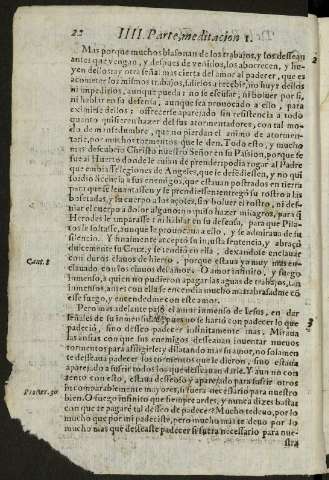 22 IIII. Parte, meditacion 1.
Mas porque muchos blasonan de los trabajos, y los dessean
antes que vengan, y despues de venidos, los aborrecen, y hu-
yen dellos: ay otra señal mas cierta del amor al padecer, que es
acometer los trabajos, salirlos a recebir, no huyr dellos
ni impedirlos, aunque pueda: no se escusar, ni bolver por si,
ni hablar en su defensa, aunque sea provocado a ello, para
eximirse dellos: ofrecerse aparejado sin resistencia a todo
quanto quisieren hazer del sus atormentadores, con tal mo-
do de mansedumbre, que no pierdan el animo de atormen-
tarle, por muchos tormentos que le den. Todo esto, y mucho
mas descubrio Christo nuestro Señor en su Passion, porque se
fue al Huerto donde le avian de prender: podia rogar al Padre
que embiasse legiones de Angeles, que le defendiessen, y no qui
so: dio licencia a sus enemigos, que estavan postrados en tierra
para que se levantassen y le prendiessen: entregò su rostro a las
bofetadas, y su cuerpo a los açotes, sin bolver el rostro, ni de-
xar el cuerpo a dolor alguno: no quiso hazer milagros, para q̃
Herodes le amparasse: ni hablar en su defensa, para que Pila-
tos le soltasse, aunque le provocava a ello, y se admirava de su
silencio. Y finalmente acceptò su injusta sentencia, y abraçò
dulcemente su Cruz, y se tendio en ella, dexandose enclavar
con duros clavos de hierro, porque estava yo muy mas en-
clavado con los clavos del amor. O amor infinito, y fuego
immenso, a quien no pudieron apagar las aguas de trabajos, tan
immensos, antes con ellas se encendia mucho mas: abrasadme cõ
esse fuego, y encendedme con este amor.
Pero mas adelante passò el amor immenso de Iesus, en dar
señales de su inmensidad, porque no se hartò con padecer lo que
padeciò, sino desseo padecer infinitamente mas. Mirava
las ansias con que sus enemigos desseavan inventar nuevos
tormentos para affligirle, y dilatando mas su amor, no solamen
te desseava padecer los tormentos que le dieron, sino estava
aparejado a sufrir todos los que desseavan darle. Y aun no con
tento con esto, estava desseoso y aparejado para sufrir otros
incomparablemente mayores, si fuera necessario para nuestro
bien. O fuego infinito que siempre ardes, y nunca dizes basta:
con que te pagarè tal desseo de padecer? Mucho te devo, por lo
mucho que por mi padeciste, pero mucho mas te devo por lo
mucho mas que desseaste padecer si fuera necessario para nue-
stra
2
3
Cant. 8
Prover. 30